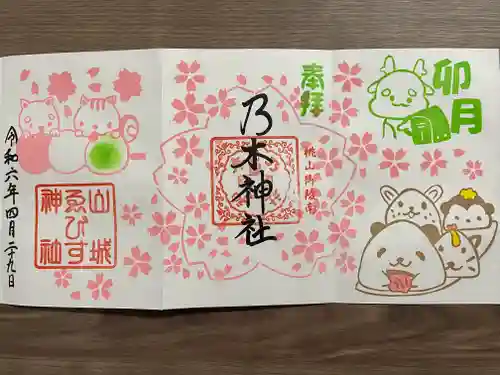 卯月
奉拝
桃山御陵南
乃木神社
山城
ゑびす
神社
令和六年四月二十九日